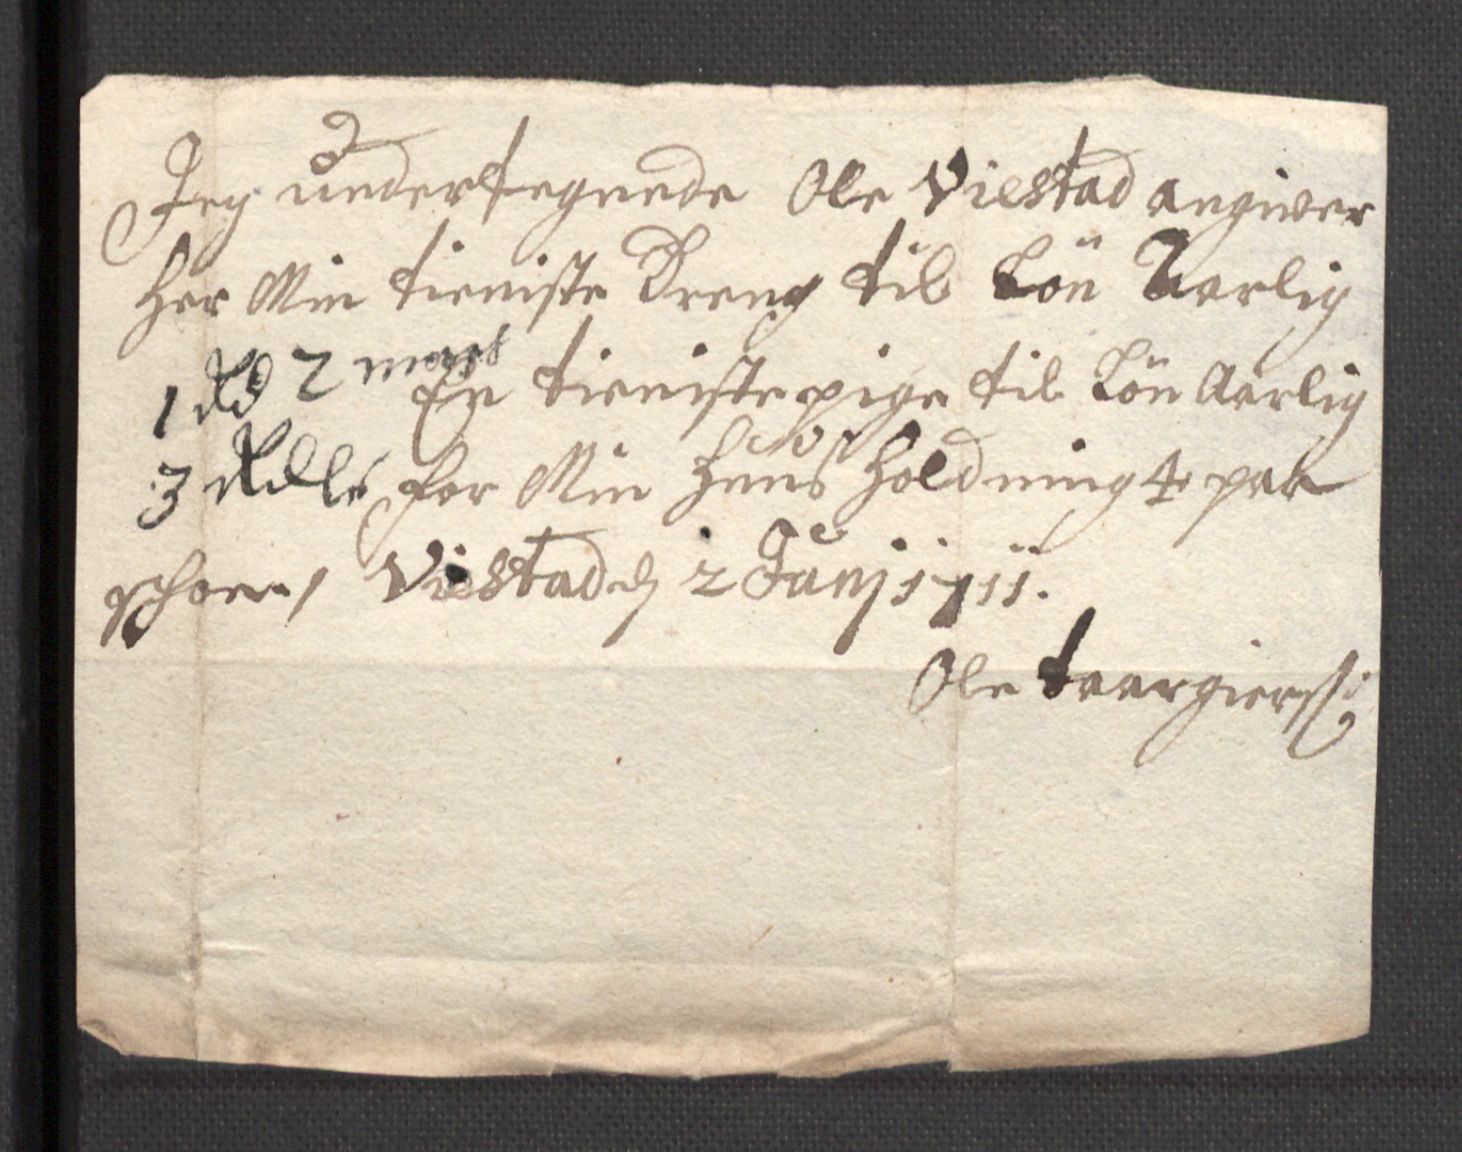 Jeg undertegnede Ole Viestad angiver
her Min tieniste Dreng til Lön Aarlig
1 Rd 2 mark En tienistepige til Lön Aarlig
3 Rdlr for Min Huus Holdning 4 par
schoer / Viestad d 2 Junj 1711.
Ole taargierss: